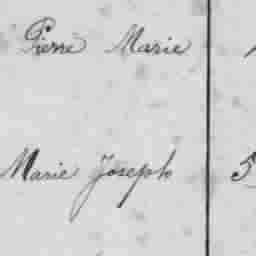 Pierre Marie
Marie Joseph 5